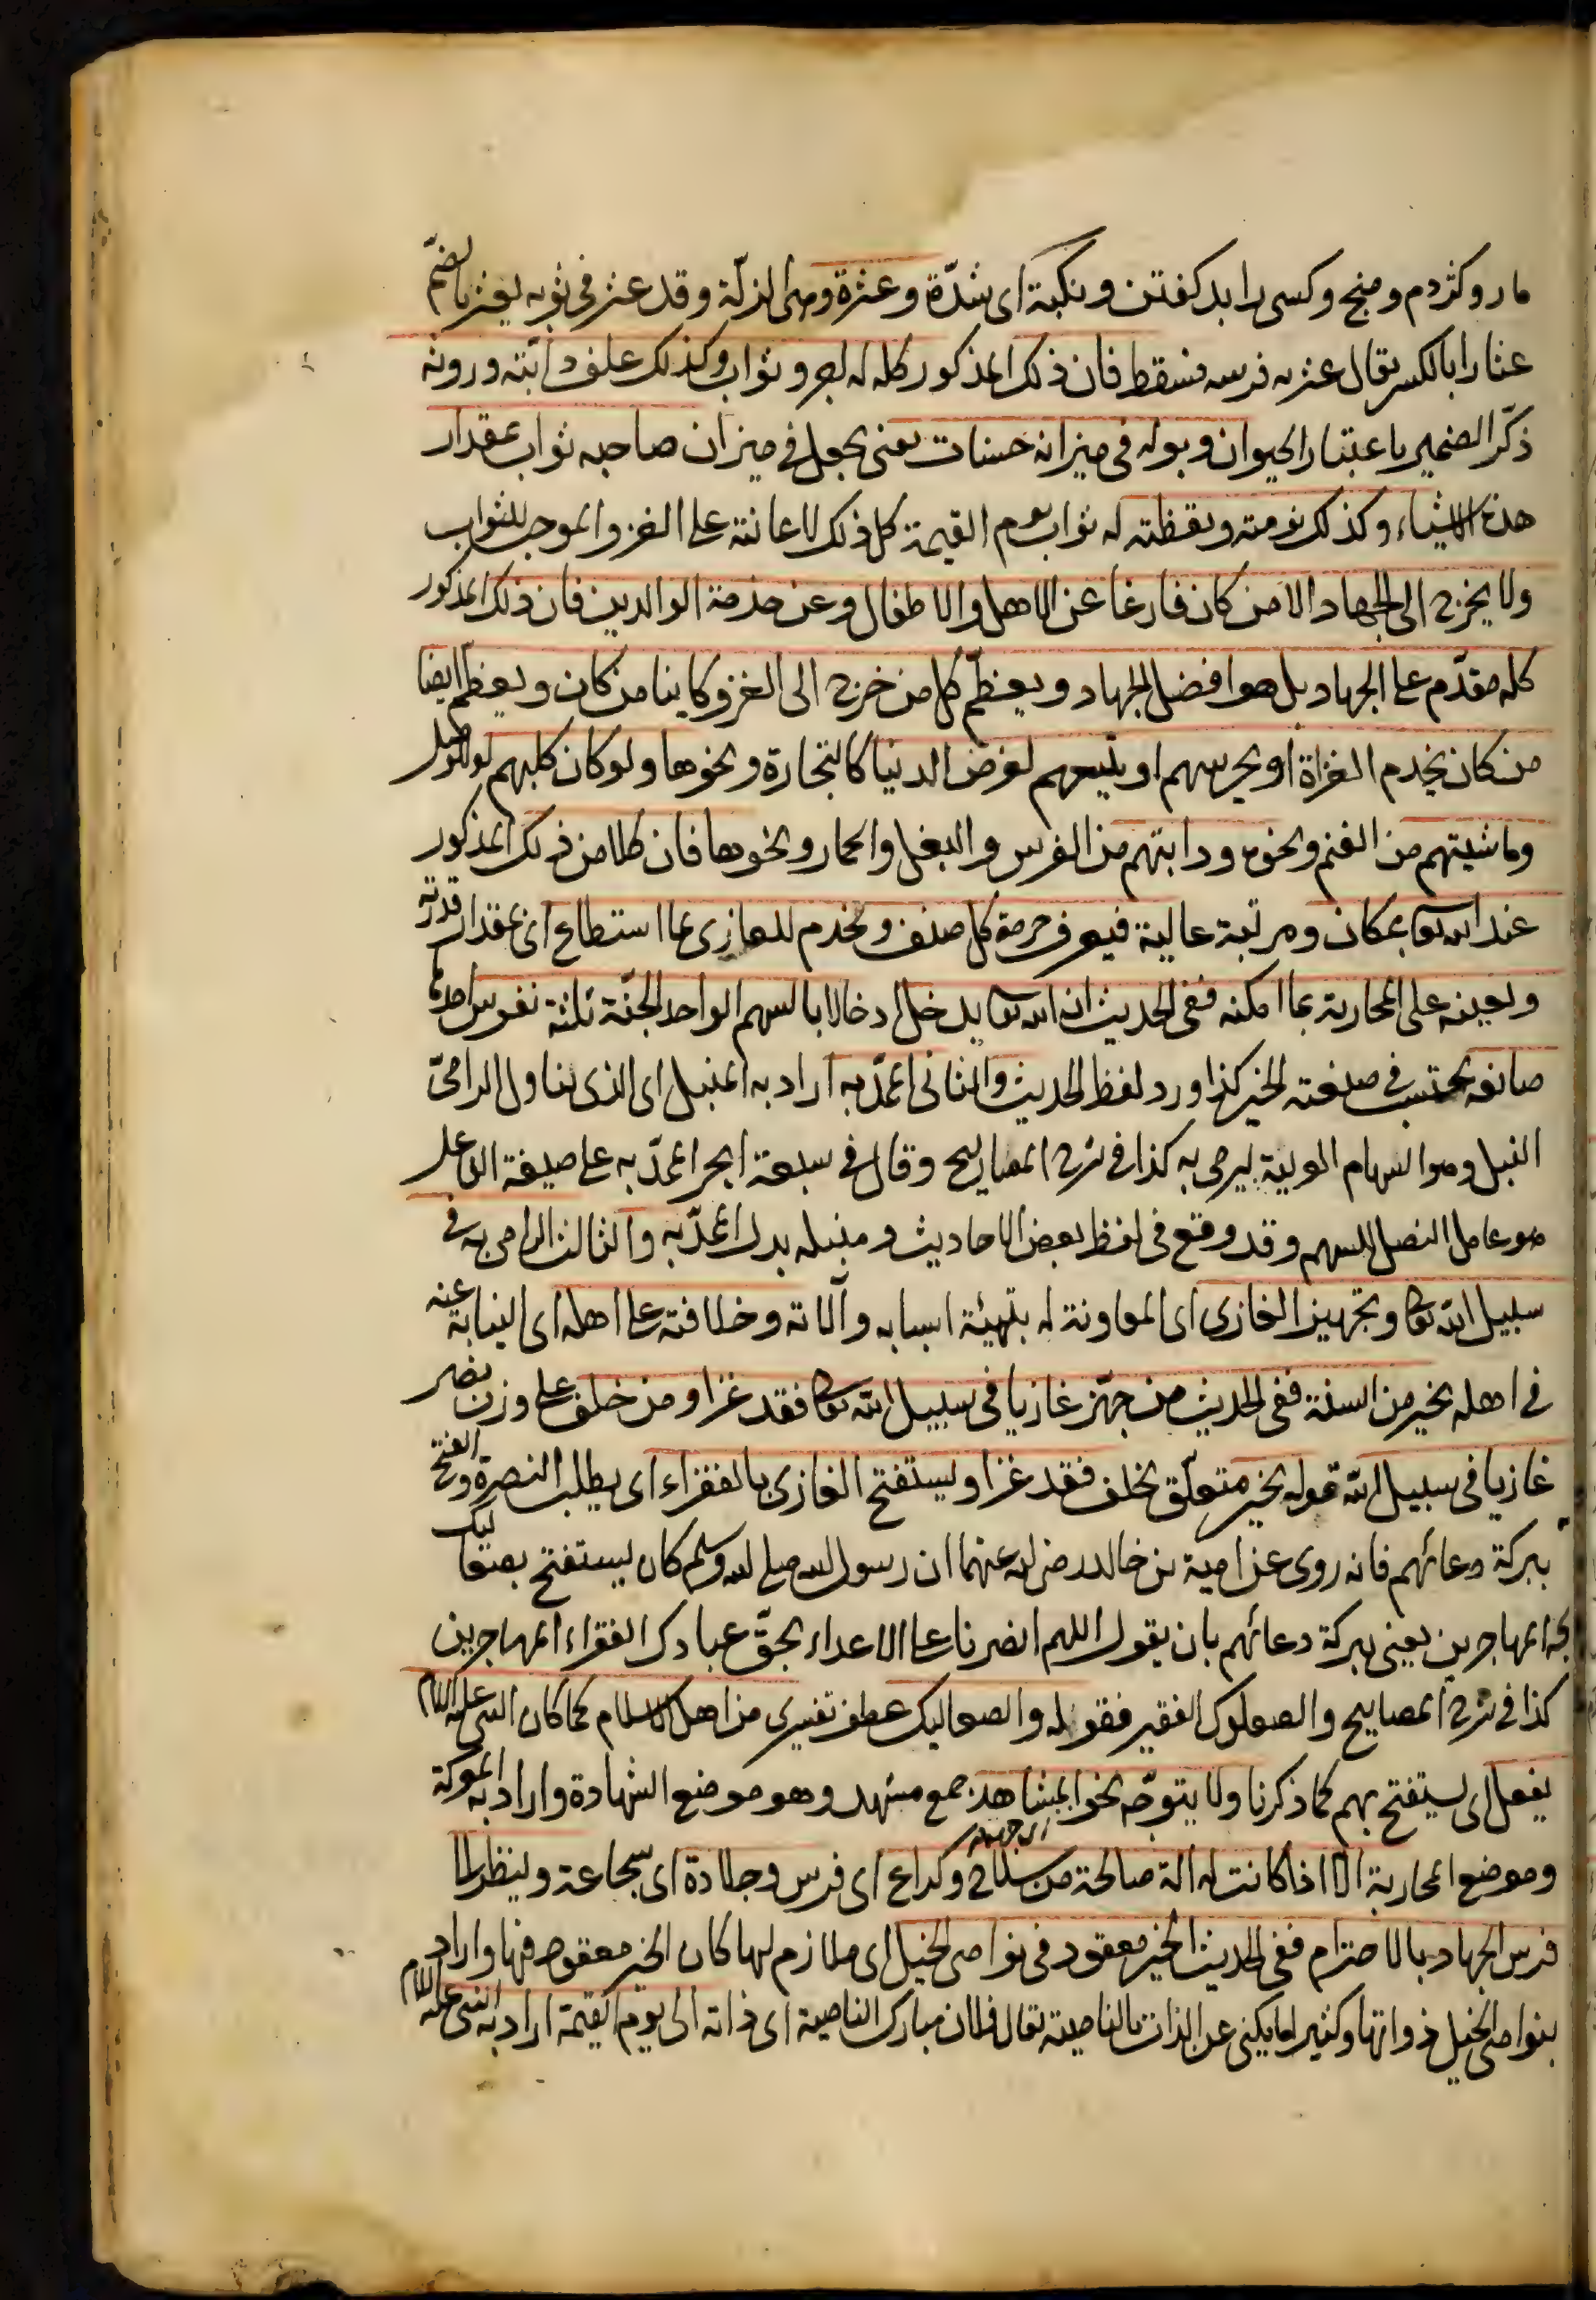 مار وكژدم ومنج وكسى را بد كفتن ونكبة اى شدّة وعثرة وهى الزلّة وقد عثر فى ثوبه يعثر بالضمّ
عثارا بالكسر يقال عثر به فرسه فسقط فان ذلك المذكور كله له اجر وثواب وكذلك علف دابّته وروثه
ذكّر الضمير باعتبار الحيوان وبوله فى ميزانه حسنات يعنى يجعل فى ميزان صاحبه ثواب بمقدار
هذه الاشياء وكذلك نومته ويقظته له ثواب يوم القيمة كل ذلك لاعانته على الغزو الموجب للثواب
ولا يخرج الى الجهاد الا من كان فارغا عن الاهل والاطفال وعن خدمة الوالدين فان ذلك المذكور
كله مقدّم على الجهاد بل هو افضل الجهاد ويعظّم كل من خرج الى الغزو كاينا من كان ويعظّم ايضا
من كان يخدم الغزاة او يحرسهم او يتبعهم لغرض الدنيا كالتجارة ونحوها ولو كان كلبهم
وماشيتهم من الغنم ونحوه ودابتهم من الفرس والبغل والحمار ونحوها فان كلا من ذلك المذكور
عند الله تعا بمكان ومرتبة عالية فيعرف حرمة كل صنف ويخدم للغازى بما استطاع اى بمقدار قدرته
ويعينه على المحاربة بما امكنه ففى الحديث ان الله تعا يدخل ادخالا بالسهم الواحد الجنّة ثلثة نفوس احدها
صانعه يحتسب فى صنعته الخير كذا ورد لفظ الحديث والثانى الممدّ به اراد به المنبل اى الذى يناول الرامىّ
النبل وهو السهام العربية ليرمى به كذا فى شرح المصابيح وقال فى سبعة ابحر الممدّ به على صيغة الفاعل
هو عامل النصل للسهم وقد وقع فى لفظ بعض الاحاديث ومنبله بدل الممدّ به والثالث الرامى به فى
سبيل الله تعا وتجهيز الغازى اى المعاونة له بتهيئة اسبابه وآلاته وخلافته على اهله اى النيابة عنه
فى اهله بخير من السنة ففى الحديث من جهّز غازيا فى سبيل الله تعا فقد غزا ومن خلف على وزن نصر
غازيا فى سبيل الله قوله بخير متعلّق بخلف فقد غزا ويستفتح الغازى بالفقراء اى يطلب النصرة والفتح
ببركة دعائهم فانه روى عن امية بن خالد رضى الله عنهما ان رسول الله صلى الله وسلم كان يستفتح بصعاليك
المهاجرين يعنى ببركة دعائهم بان يقول اللهم انصرنا على الاعداء بحقّ عبادك الفقراء المهاجرين
كذا فى شرح المصابيح والصعلوك الفقير فقوله والصعاليك عطف تفسيرى من اهل الاسلام كما كان النبى عليه السلام
يفعل اى يستفتح بهم كما ذكرنا ولا يتوجّه نحو المشاهد جمع مشهد وهو موضع الشهادة واراد به المعركة
وموضع المحاربة الا اذا كانت له الة صالحة من سلاح وكراع اى فرس وجلادة اى شجاعة وينظر الى
فرس الجهاد بالاحترام ففى الحديث الخير معقود فى نواصى الخيل اى ملازم لها كان الخير معقود فيها واراد
بنواصى الخيل ذواتها وكثيرا ما يكنى عن الذات بالناصية يقال فلان مبارك الناصية اى ذاته الى يوم القيمة اراد به النبى عليه السلام